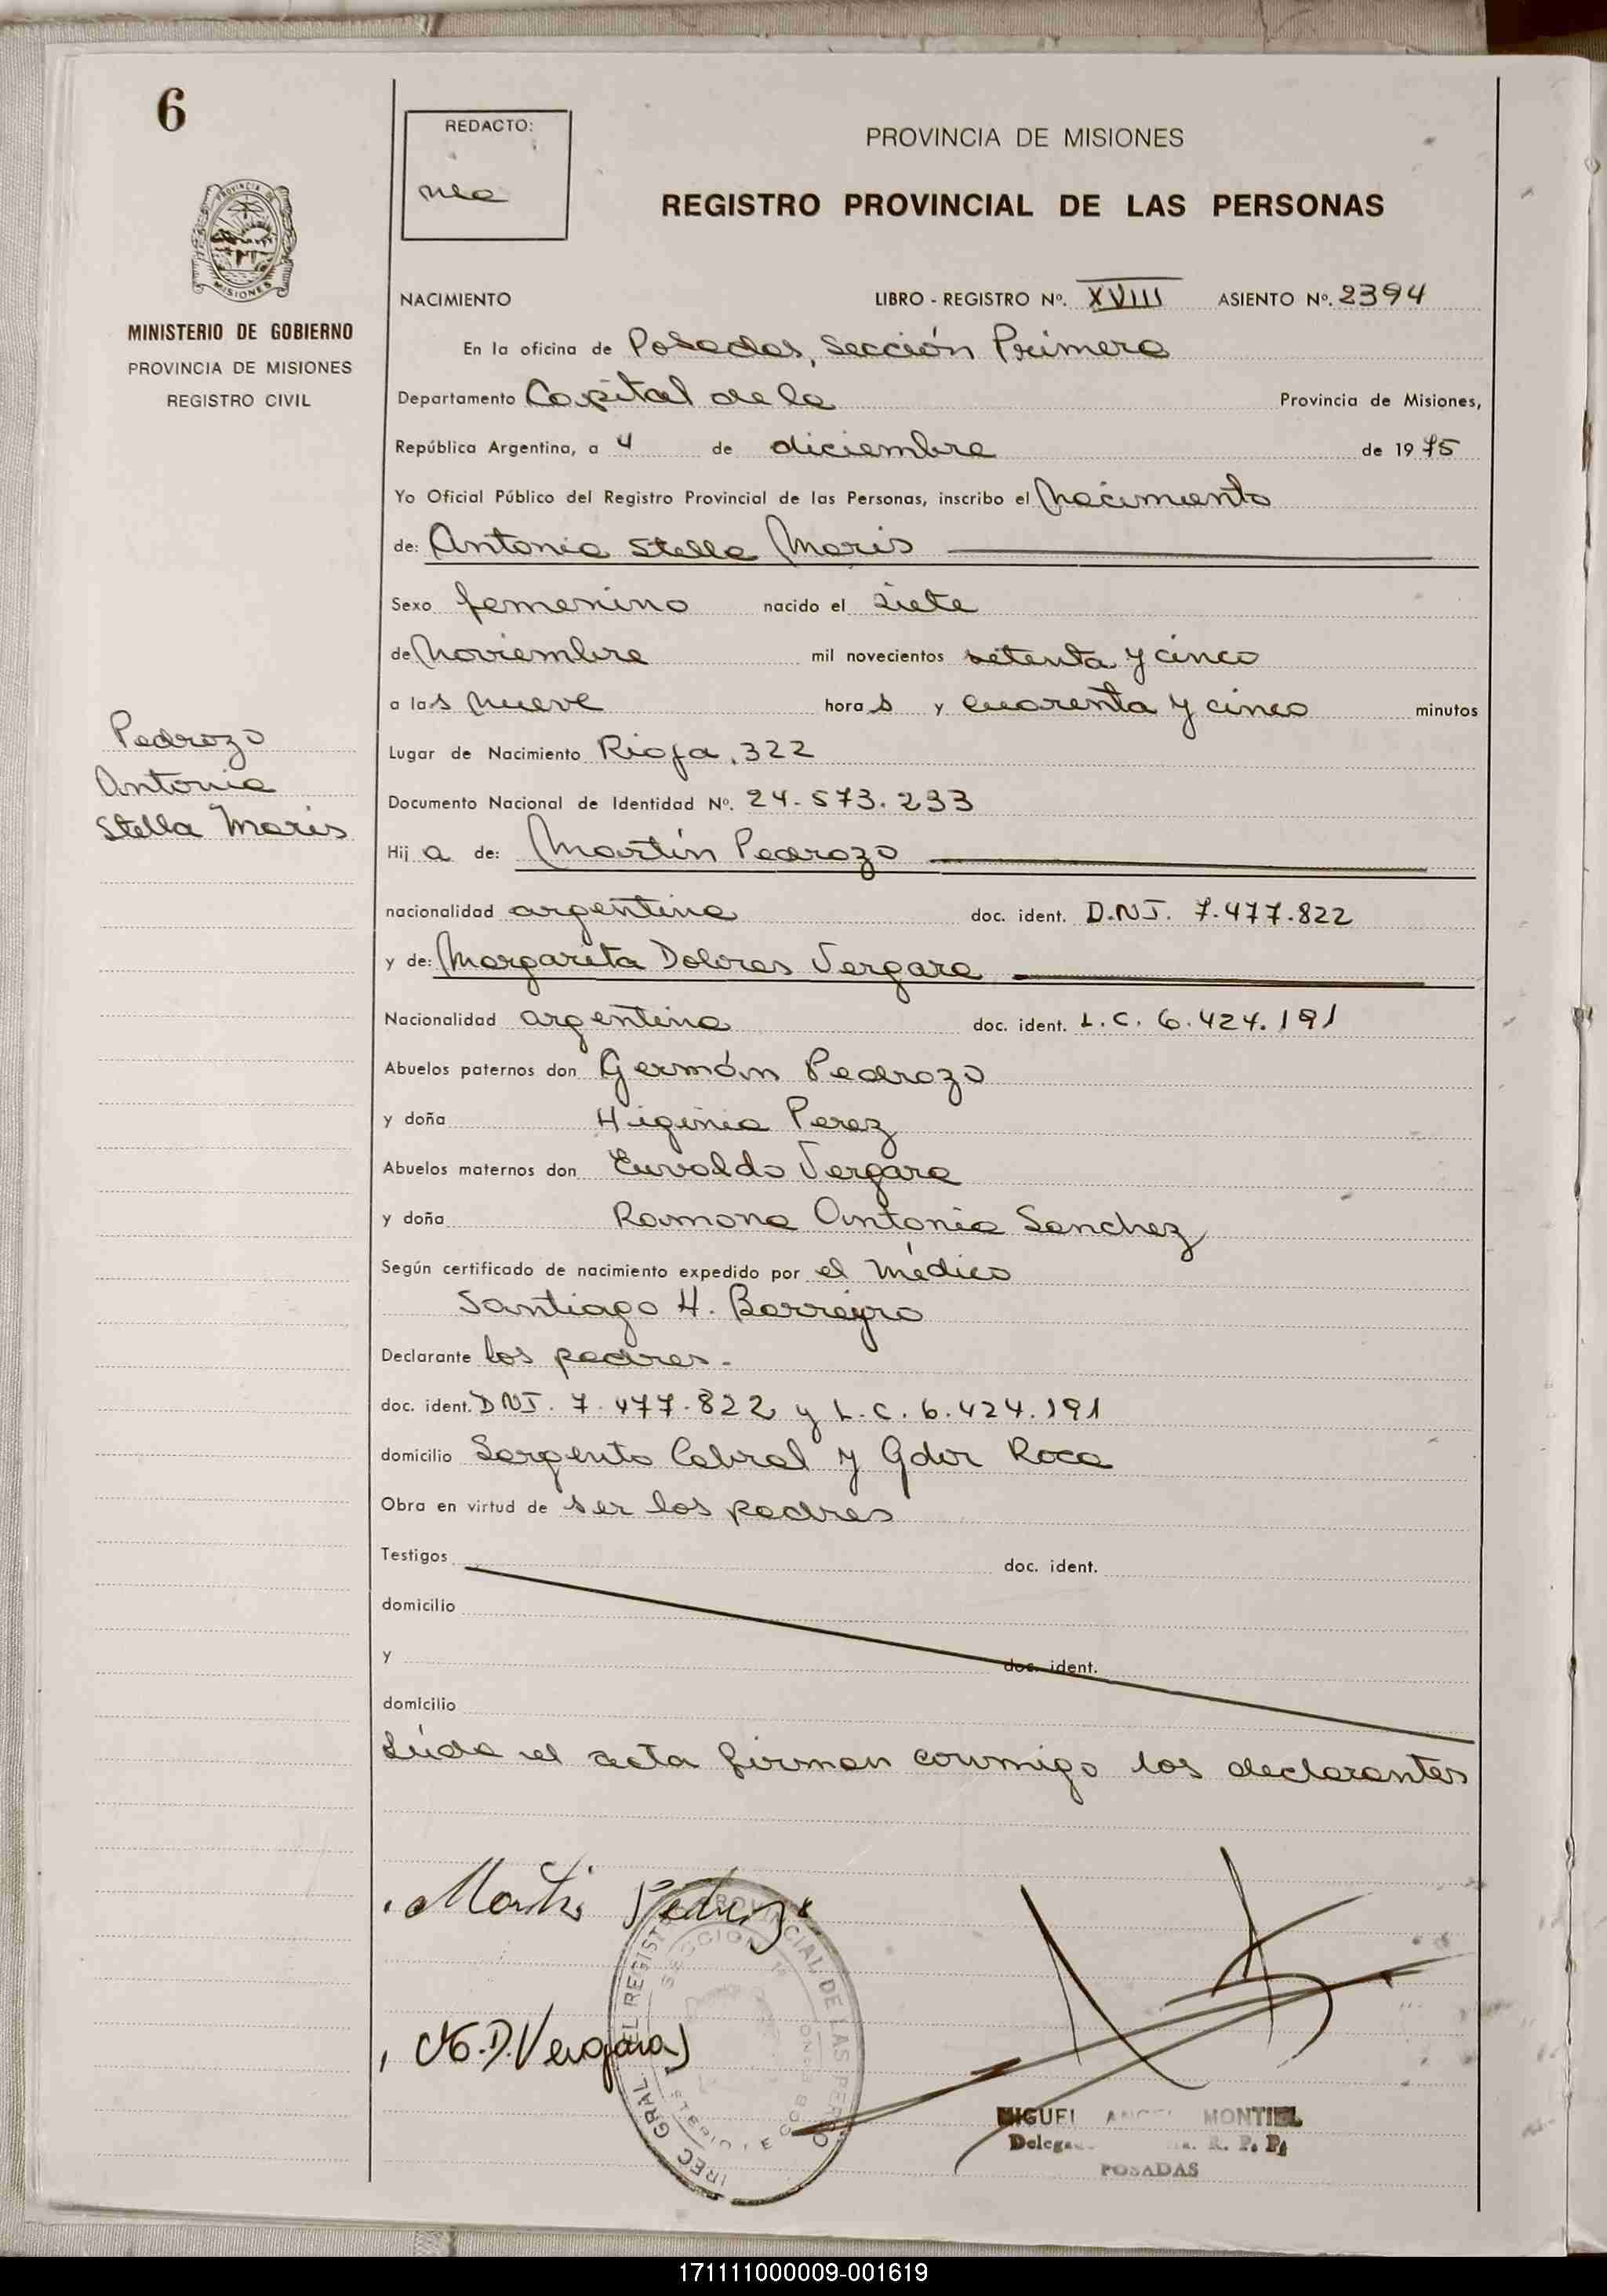 6
REDACTO:
PROVINCIA DE MISIONES
REGISTRO PROVINCIAL DE LAS PERSONAS
PROVINCIA DE
MISIONES
MINISTERIO DE GOBIERNO
PROVINCIA DE MISIONES
REGISTRO CIVIL
NACIMIENTO LIBRO - REGISTRO Nº. XVIII ASIENTO Nº. 2394
En la oficina de Posadas, Sección Primera
Departamento Capital de la Provincia de Misiones,
República Argentina, a 4 de diciembre de 1975
Yo Oficial Público del Registro Provincial de las Personas, inscribo el Nacimiento
de: Antonia Stella Maris
Sexo femenino nacido el siete
de Noviembre mil novecientos setenta y cinco
a las nueve horas y cuarenta y cinco minutos
Pedrozo
Antonia
Stella Maris
Lugar de Nacimiento Rioja, 322
Documento Nacional de Identidad Nº. 24.573.233
Hija de: Martín Pedrozo
nacionalidad argentina doc. ident. D.N.I. 7.477.822
y de: Margarita Dolores Vergara
Nacionalidad argentina doc. ident. L.C. 6.424.191
Abuelos paternos don Germán Pedrozo
y doña Higinia Perez
Abuelos maternos don Euvaldo Vergara
y doña Ramona Antonia Sanchez
Según certificado de nacimiento expedido por el médico
Santiago H. Barreyro
Declarante los padres.
doc. ident. DNI. 7.477.822 y L.C. 6.424.191
domicilio Sargento Cabral y Gdor Roca
Obra en virtud de ser los padres
Testigos doc. ident.
domicilio
y doc. ident.
domicilio
Leída el acta firman conmigo los declarantes
Martin Pedrozo
M.D. Vergara
MIGUEL ANGEL MONTIEL
R. P. P.
POSADAS
171111000009-001619